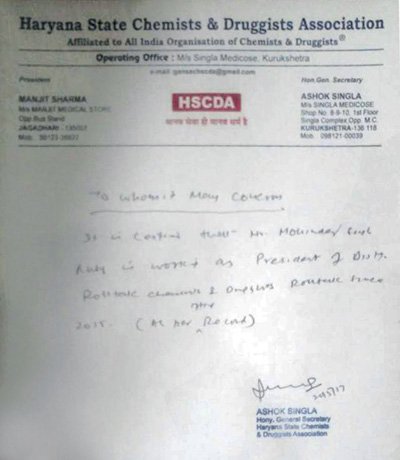 Haryana State Chemists & Druggists Association
Affiliated to All India Organisation of Chemists & Druggists®
Operating Office : M/s Singla Medicose, Kurukshetra
e-mail gensechscda@gmail.com
President
MANJIT SHARMA
M/s MANJIT MEDICAL STORE
Opp Bus Stand
JAGADHARI - 135003
Mob.
HSCDA
मानव सेवा ही मानव धर्म है
Hon.Gen. Secretary
ASHOK SINGLA
M/s SINGLA MEDICOSE
Shop No. 8-9-10, 1st Floor
Singla Complex Opp. M.C.
KURUKSHETRA-136 118
Mob. 098121-00039
To whom it May Concern
It is that Mr. Mohinder
is work as President of Distt.
Rohtak Chemists & Druggists Rohtak since
(As per Record)
ASHOK SINGLA
Hony. General Secretary
Haryana State Chemists
& Druggists Association